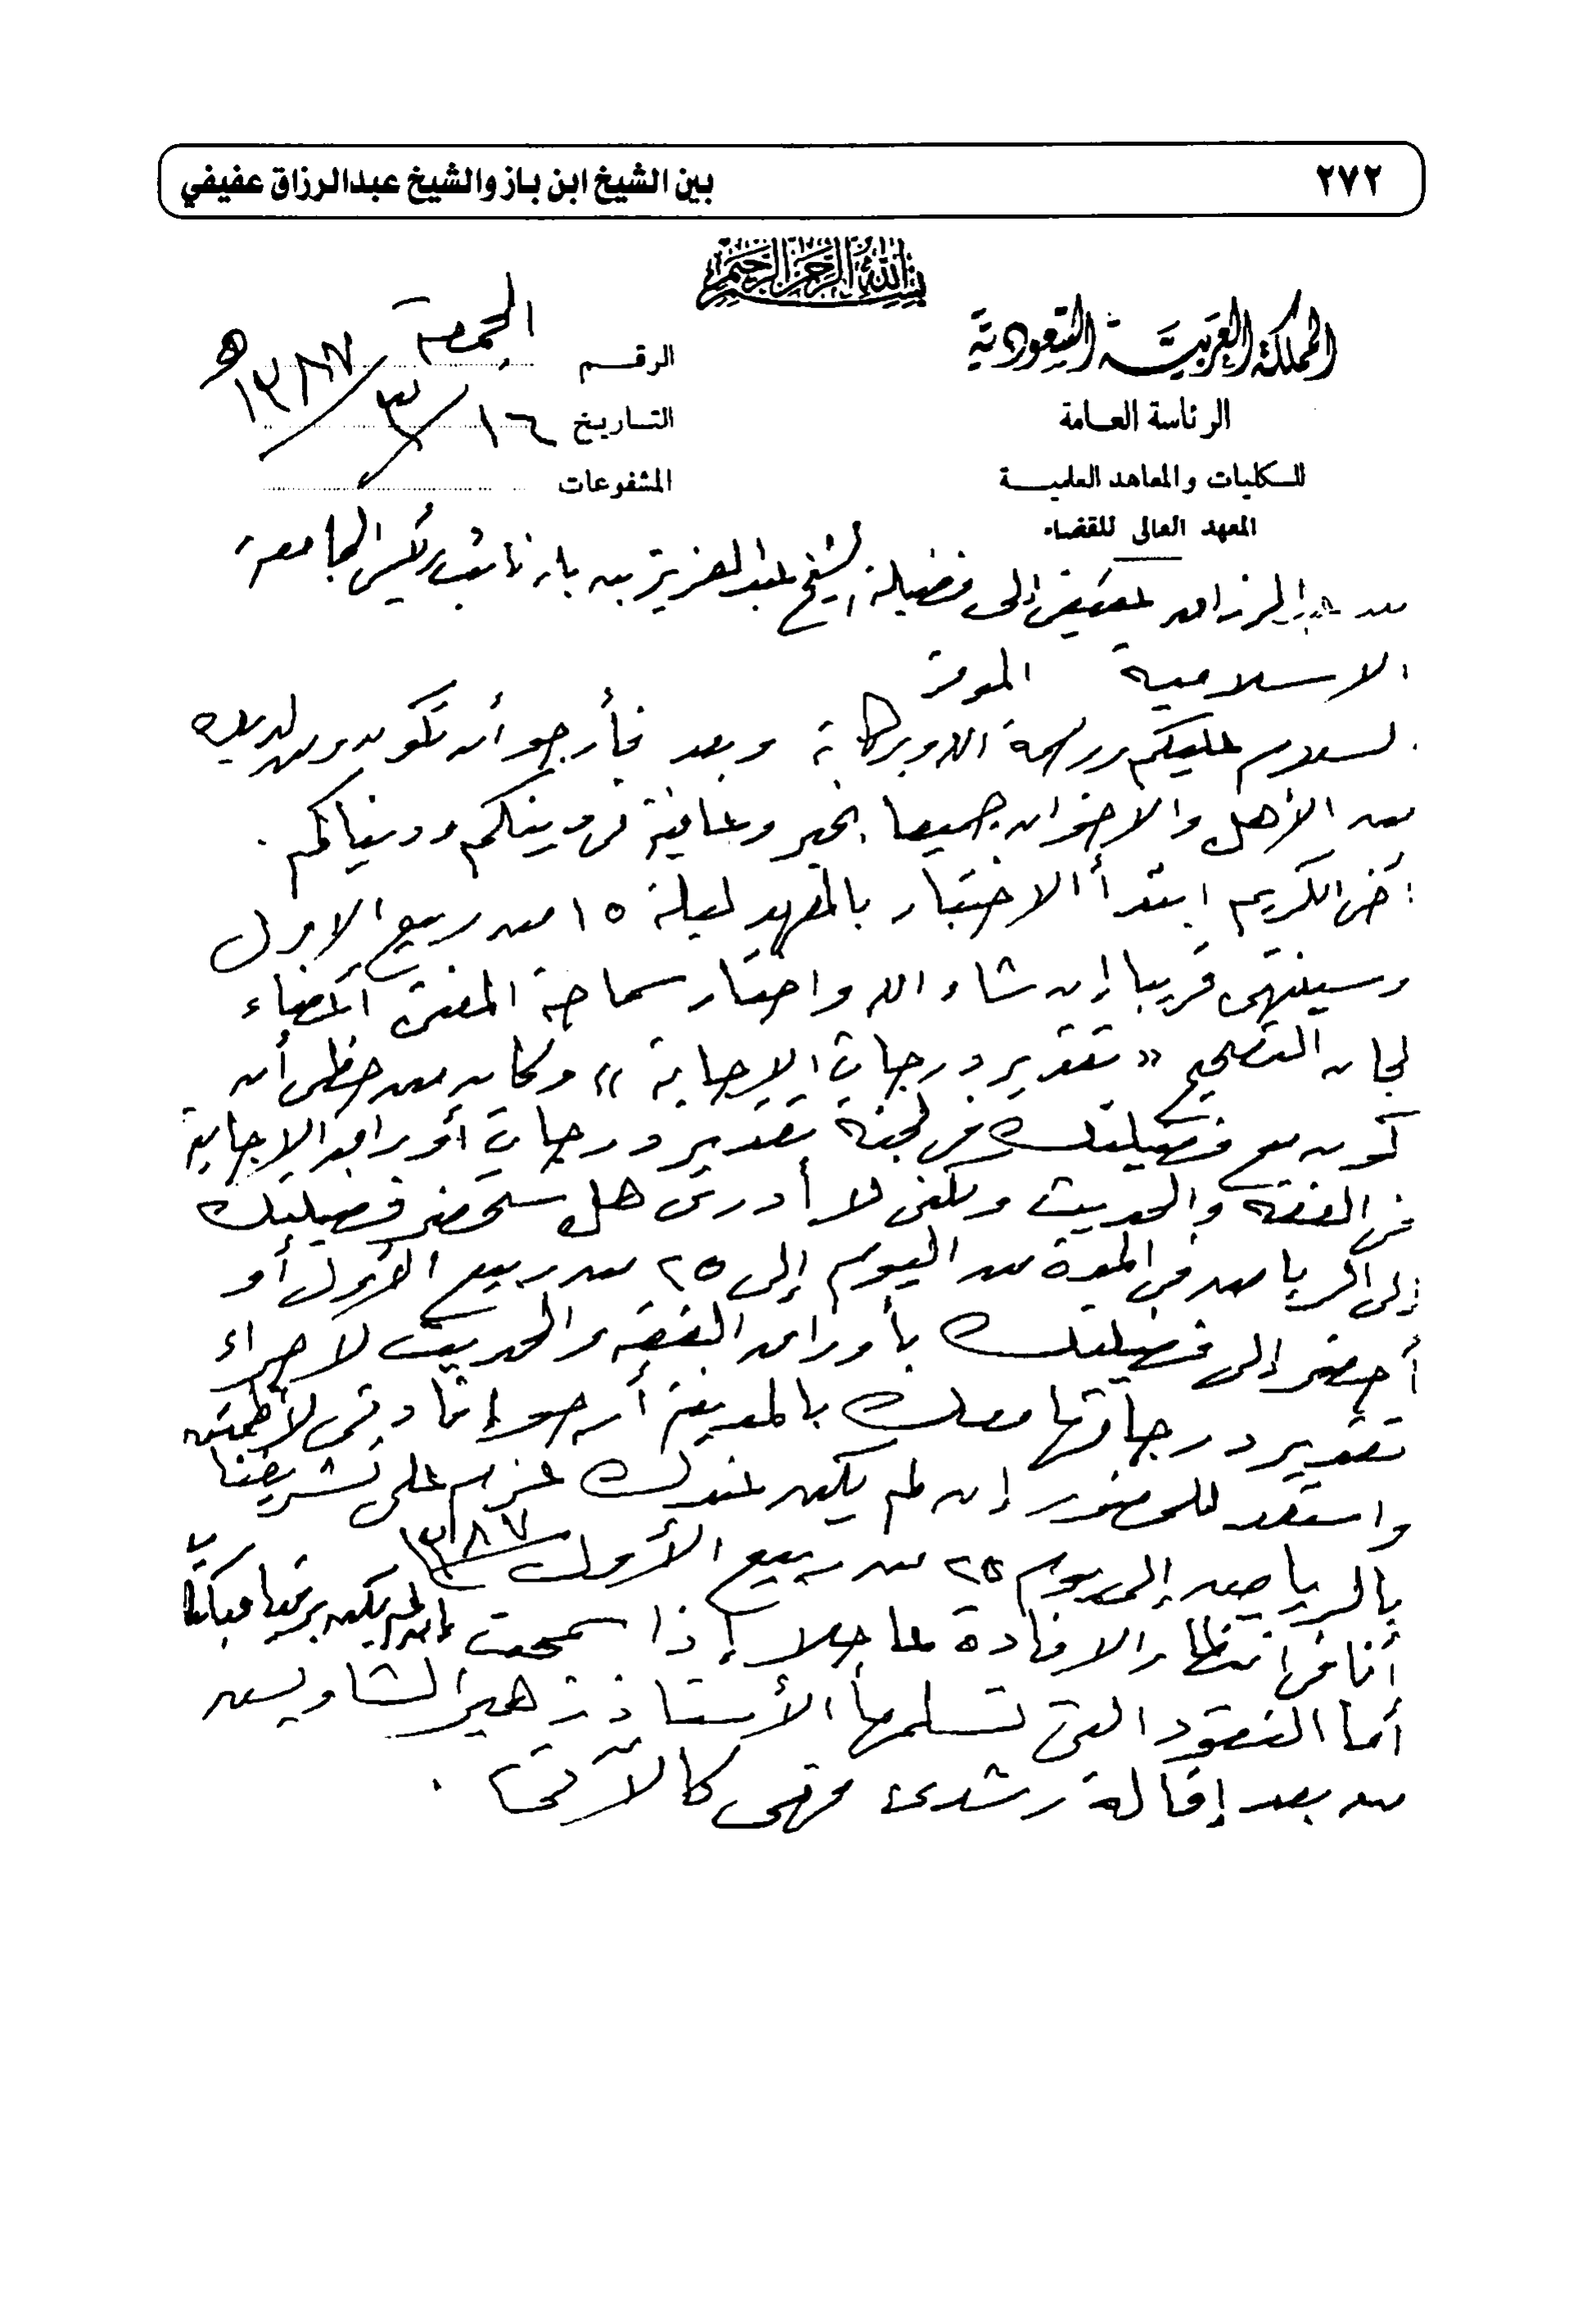 ٢٧٢
بين الشيخ ابن باز والشيخ عبدالرزاق عفيفي
بسم الله الرحمن الرحيم
المملكة العربية السعودية
الرئاسة العامة
للكليات والمعاهد العلمية
المعهد العالى للقضاء
الرقم الجمعة
التاريخ ١٦/٣/١٣٨٧ه
المشفوعات
من عبدالرزاق عفيفى إلى فضيلة الشيخ عبدالعزيز بن باز نائب رئيس الجامعة
الاسلامية الموقر
السلام عليكم ورحمة الله وبركاته وبعد فأرجو أن تكون ومن لديك
من الأهل والاخوان جميعا بخير وعافية فى دينكم ودنياكم .
أخى الكريم ابتدأ الاختبار بالمعهد ليلة ١٥ من ربيع الاول
وسينتهى قريبا إن شاء الله واختار سماحة المفتى أعضاء
لجان التصحيح « تقدير درجات الإجابة » وكان من حظى أن
أكون مع فضيلتك فى لجنة تقدير درجات أوراق الإجابة
فى الفقه والحديث ولكنى لا أدرى هل ستحضر فضيلتك
إلى الرياض فى المدة من اليوم إلى ٢٥ من ربيع الأول أو
أحضر إلى فضيلتك بأوراق الفقه والحديث لاجراء
تقدير درجاتها معك بالمدينة أرجو إفادتى لأطمئن
واستعد للحضور إن لم يكن عندك عزم على تشريفنا
بالرياض إلى يوم ٢٥ من ربيع الأول ١٣٨٧
أنا فى انتظار الافادة عاجلا إذا سمحت إن لم يكن برقيا فكتابيا
أما النقود التى تسلمها الأستاذ زهير الشاويش
من بعد إقالة رشدى فهى كالآتى .